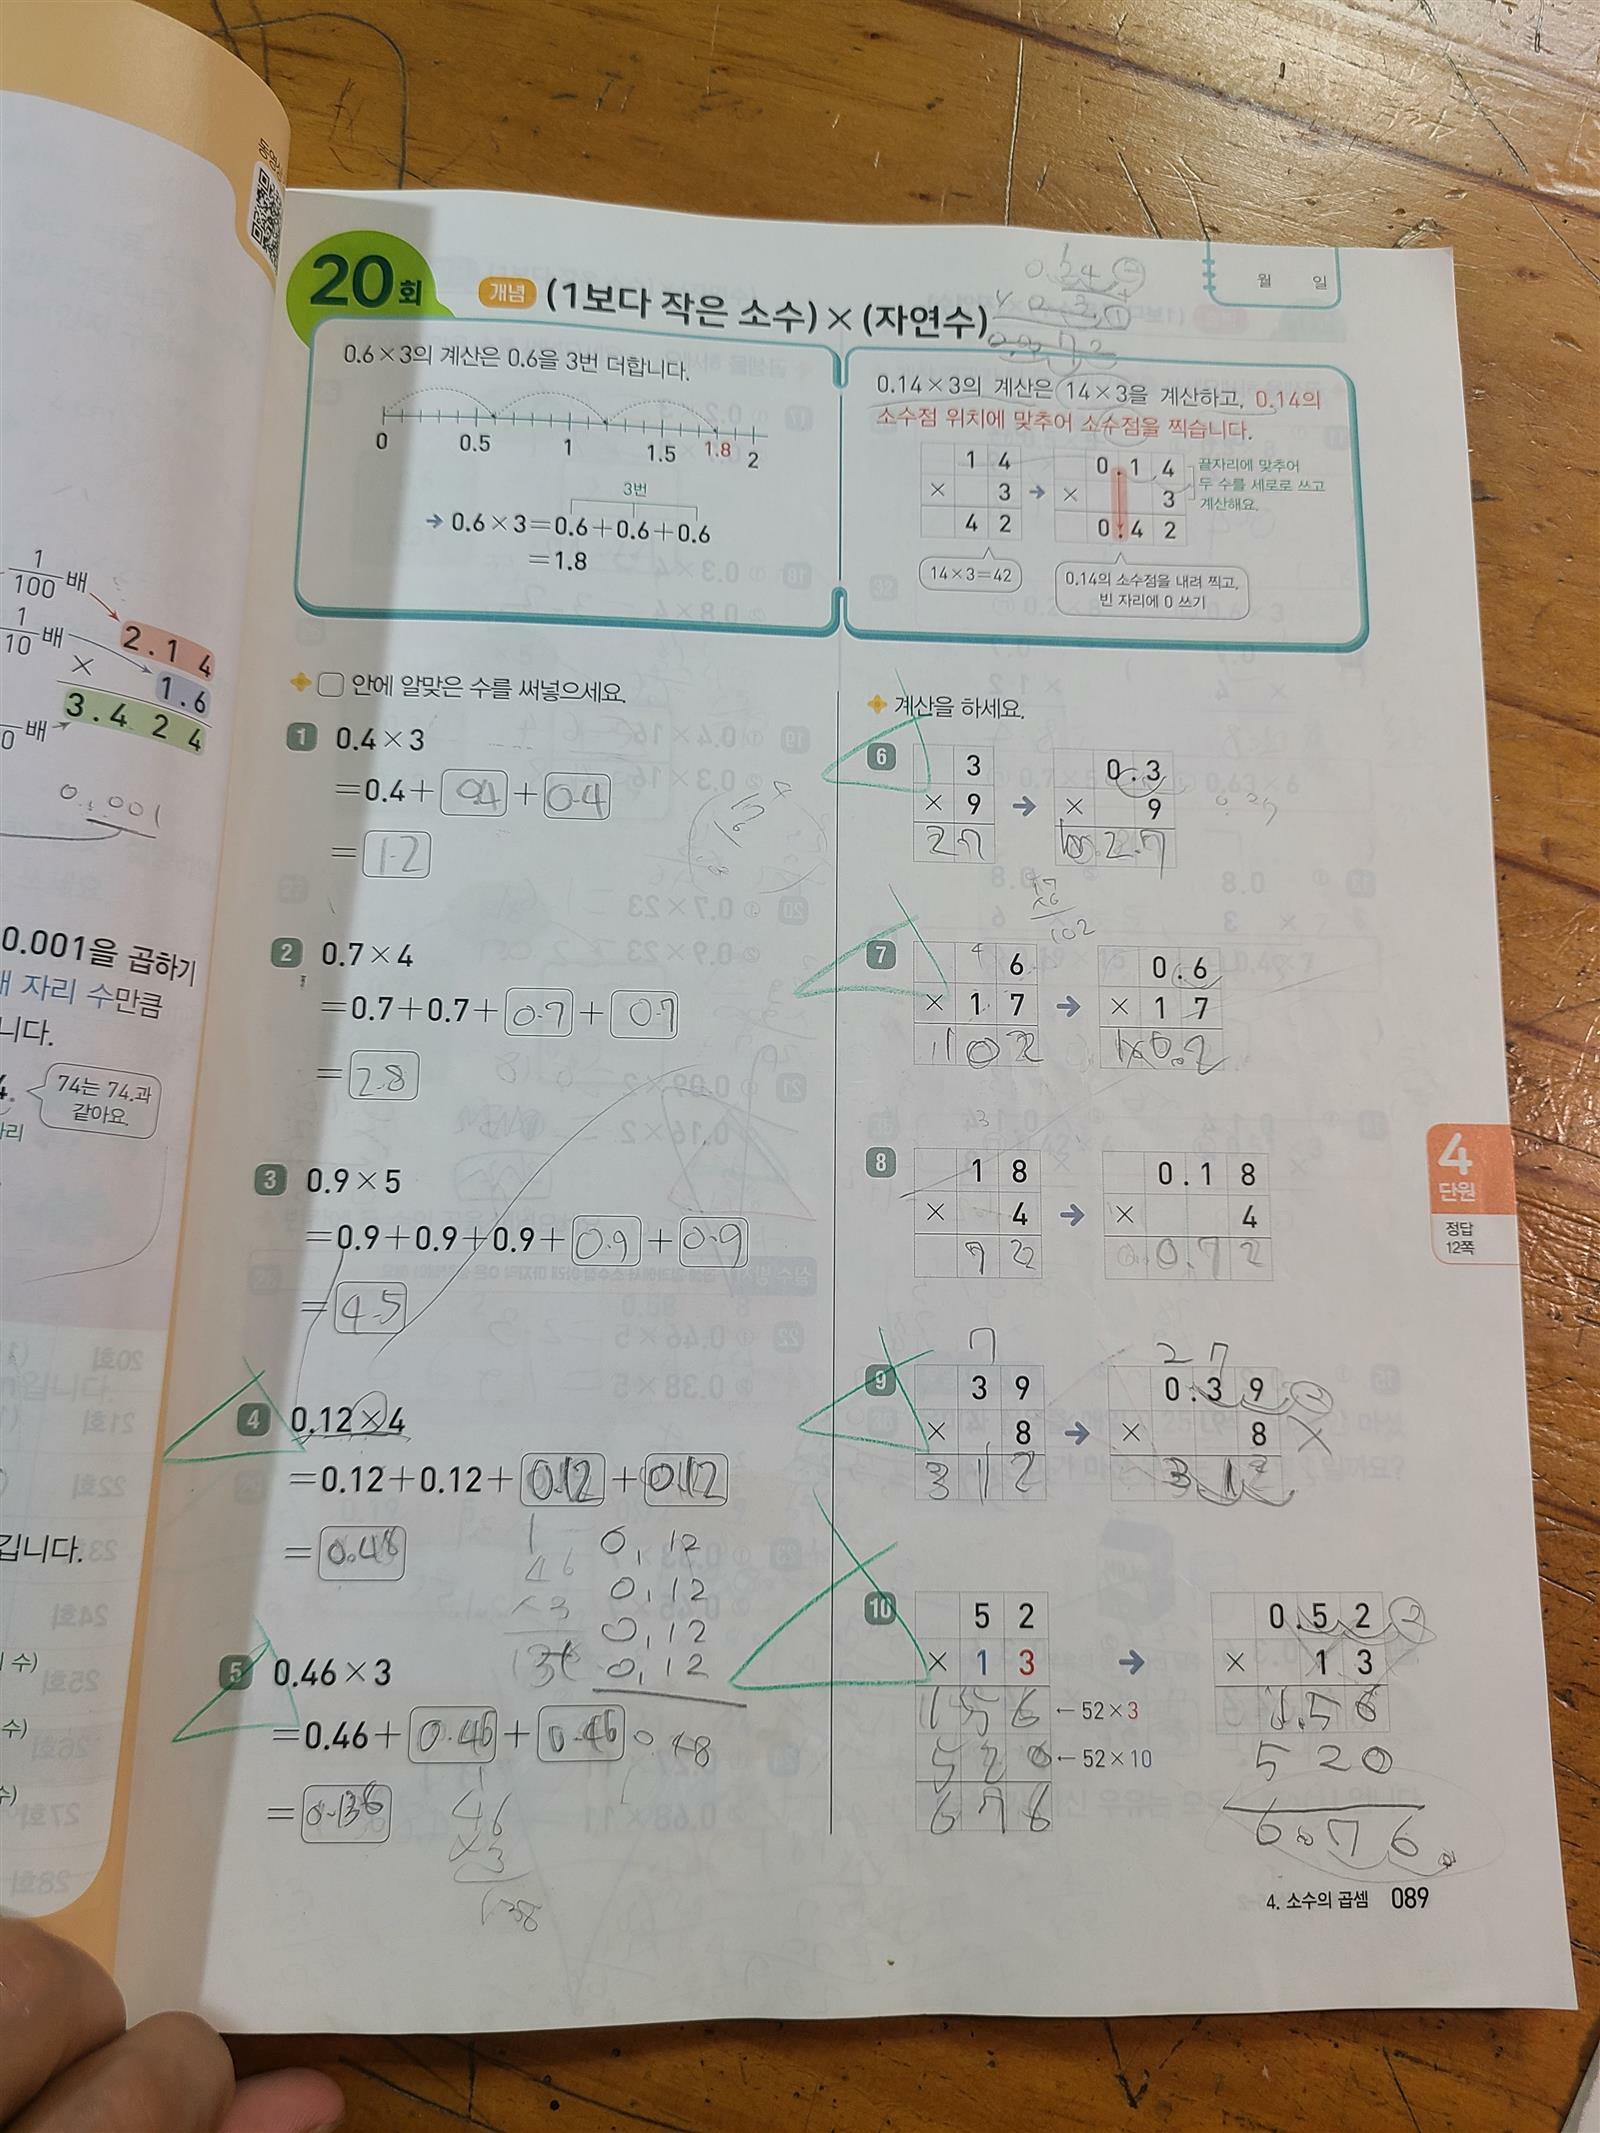 동영상
1/100 배
1/10 배
2.14
× 1.6
배 3.424
0.001
0.001을 곱하기
자리 수만큼
니다.
74는 74.과
같아요.
자리
깁니다.
수)
수)
20회
개념 (1보다 작은 소수)×(자연수)
월 일
0.6×3의 계산은 0.6을 3번 더합니다.
0 0.5 1 1.5 1.8 2
3번
→ 0.6×3=0.6+0.6+0.6
=1.8
0.14×3의 계산은 14×3을 계산하고, 0.14의
소수점 위치에 맞추어 소수점을 찍습니다.
1 4
× 3
4 2
→
0.1 4
× 3
0.4 2
끝자리에 맞추어
두 수를 세로로 쓰고
계산해요.
14×3=42
0.14의 소수점을 내려 찍고,
빈 자리에 0 쓰기
□ 안에 알맞은 수를 써넣으세요.
1 0.4×3
=0.4+0.4+0.4
=1.2
2 0.7×4
=0.7+0.7+0.7+0.7
=2.8
3 0.9×5
=0.9+0.9+0.9+0.9+0.9
=4.5
4 0.12×4
=0.12+0.12+0.12+0.12
=0.48
0,12
0,12
0,12
0,12
0.48
5 0.46×3
=0.46+0.46+0.46
=0.136
46
×3
계산을 하세요.
6
3
× 9
27
→
0.3
× 9
2.7
7
6
× 1 7
102
→
0.6
× 1 7
10.2
17
×6
102
8
1 8
× 4
7 2
→
0.1 8
× 4
0.7 2
9
7
3 9
× 8
3 1 2
→
2 7
0.3 9
× 8
3.12
10
5 2
× 1 3
1 5 6 ←52×3
5 2 0 ←52×10
6 7 6
→
0.5 2
× 1 3
1.5 6
5 2 0
6.7 6
4
단원
정답
12쪽
4. 소수의 곱셈 089